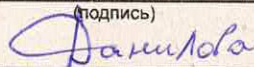 (подпись)
Данилова